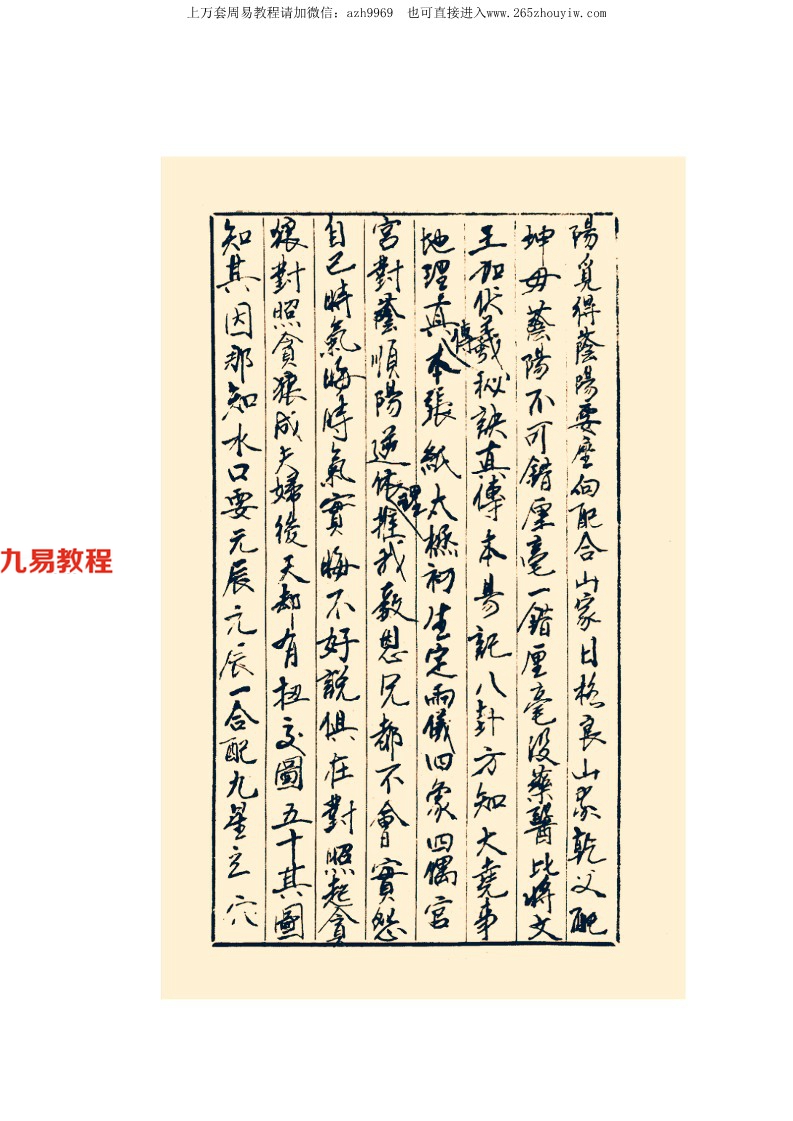 上万套周易教程请加微信：azh9969 也可直接进入www.265zhouyiw.com
陽覓得蔭陽要座向配合山家日格良山家乾父配
坤母蔭陽不可錯厘毫一錯厘毫沒藥醫比將文
王加伏羲秘訣真傳本易記八卦方知大堯事
地理真傳本張紙太極初生定兩儀四象四偶宮
宮對蔭順陽逆休理推我教恩兄都不會實怨
自己時氣晦時氣實晦不好說俱在對照起貪
狼對照貪狼成夫婦後天都有杻交圖五十其圖
知其因那知水口要元辰元辰一合配九星立穴
九易教程